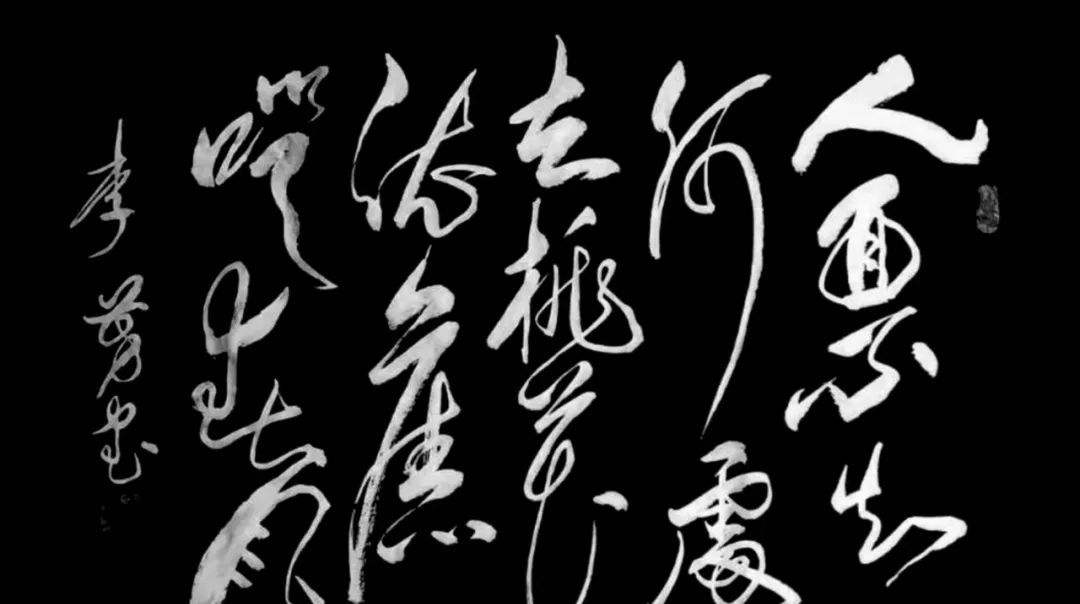 人面不知
何處
去桃花
依舊
笑春風
李書